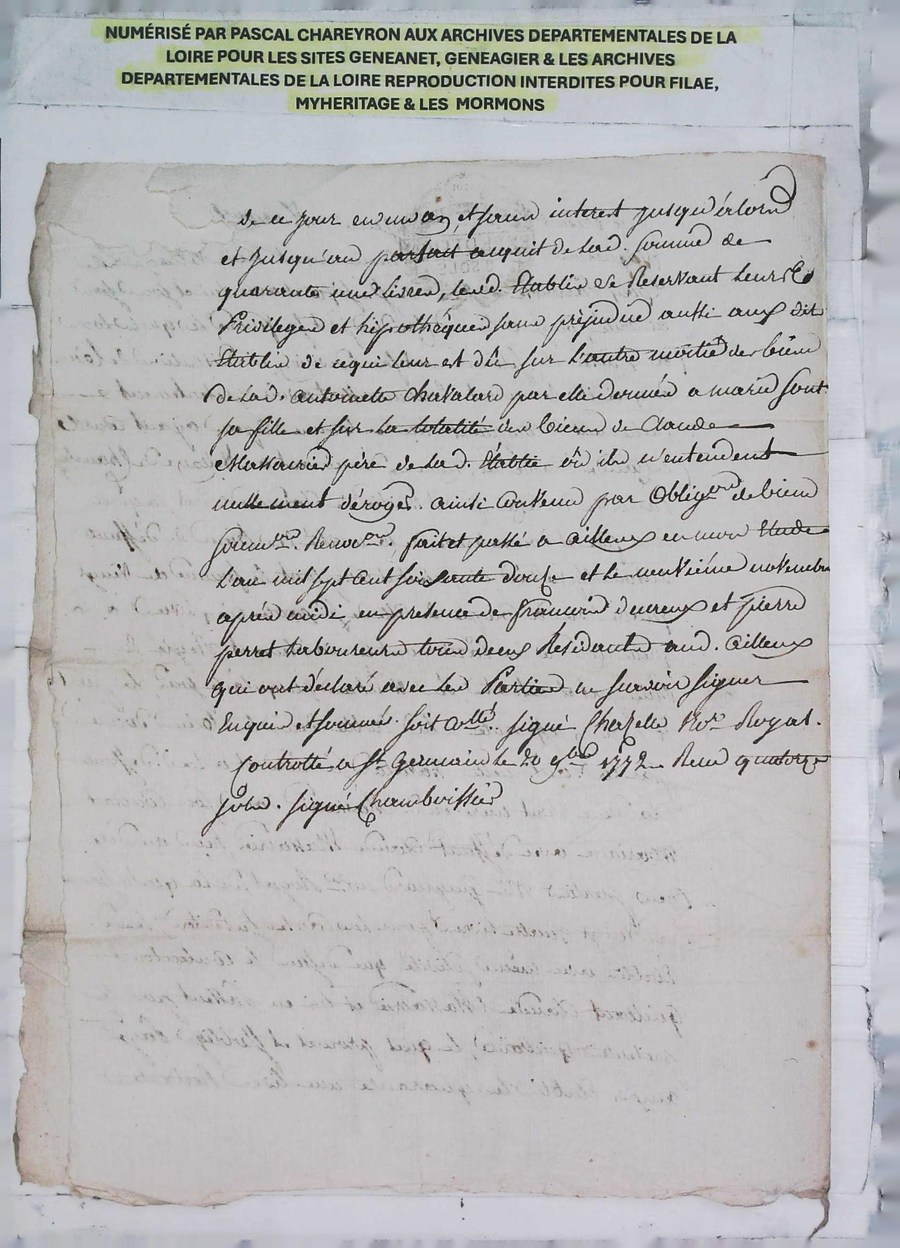 NUMÉRISÉ PAR PASCAL CHAREYRON AUX ARCHIVES DEPARTEMENTALES DE LA
LOIRE POUR LES SITES GENEANET, GENEAGIER & LES ARCHIVES
DEPARTEMENTALES DE LA LOIRE REPRODUCTION INTERDITES POUR FILAE,
MYHERITAGE & LES MORMONS
de ce jour en un an, et sans interest jusqu'alors
et jusqu'au parfait acquit de lad. somme de
quarante une livres, lesd. Etablis se Reservant leurs
Privileges et hipotheques sans prejudice aussi aux dit
Etablis de ce qui leur est dû sur l'autre moitié des biens
de lad. antoinette Chavalard par elle donnés a marie
sa fille et sur la totalité des biens de Claude
Massacrier père de lad. Etablie où ils n'entendent
nullement déroger. ainsi convenu par Oblig.ons de biens
soum.ons Renon.ons fait et passé a ailleux en mon Etude
l'an mil sept cent soixante douze et le neuvième novembre
après midi en presence de françois ducreux et pierre
perret laboureurs tous deux Residants aud. ailleux
qui ont déclaré avec les Parties ne savoir signer
Enquis et sommés. soit collé. signé Chazelle No.re Royal.
Controllé a St Germain le 20 9bre 1772 Recu quatorze
sols. signé Chamboissier